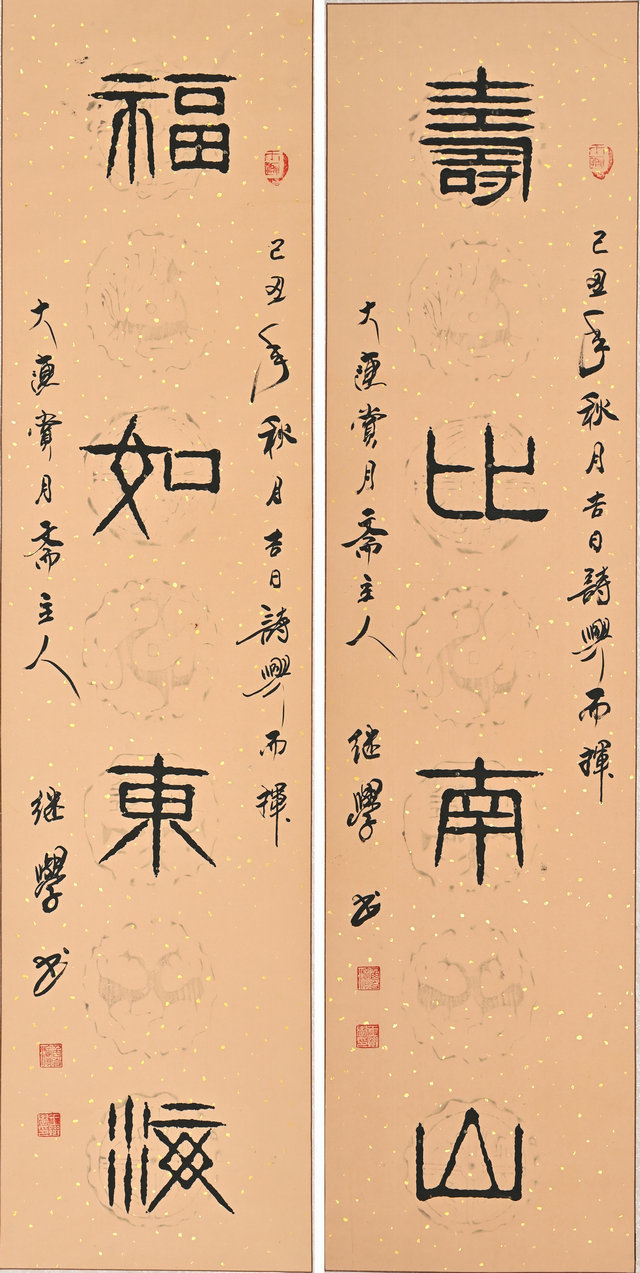 壽比南山
己丑年秋月吉日詩興而揮
大連賞月斋主人
继學书
福如東海
己丑年秋月吉日詩興而揮
大連賞月斋主人
继學书